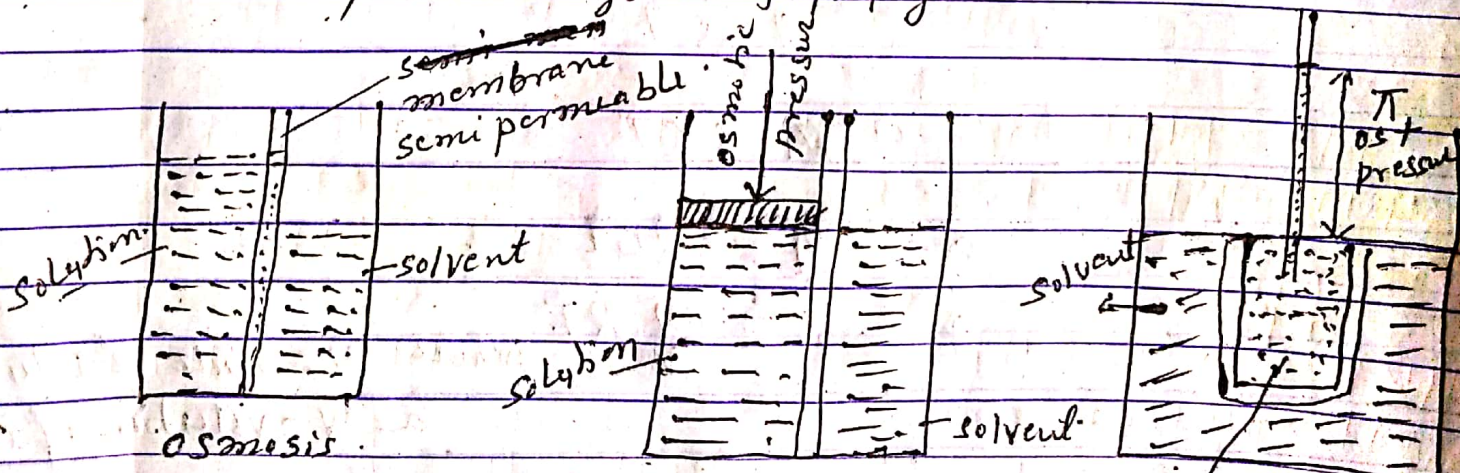 semi mem
membrane
semi permeable
solution
solvent
osmosis.
osmotic
pressur
solution
solvent.
π
os +
pressur
solvent